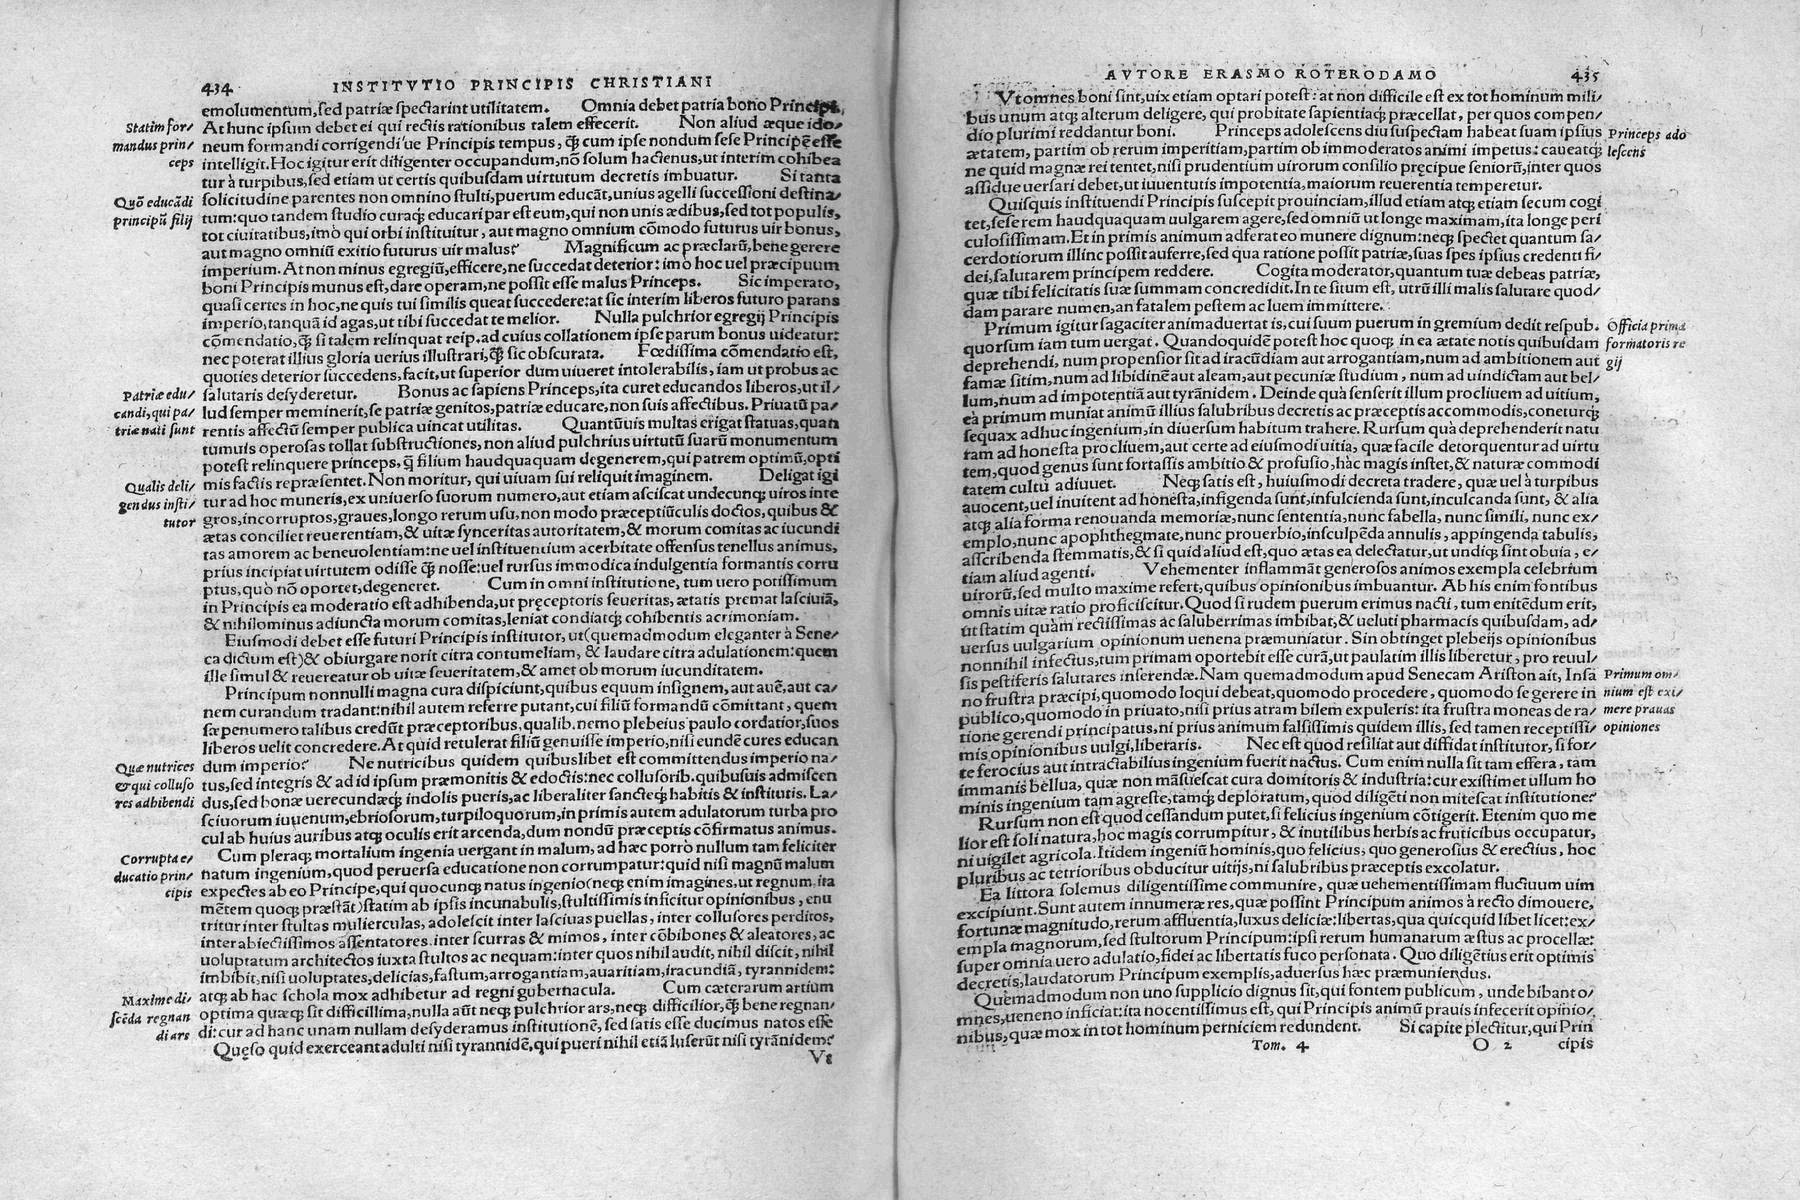 434 INSTITVTIO PRINCIPIS CHRISTIANI
emolumentum, sed patriæ spectarint utilitatem. Omnia debet patria bono Principi,
Statim for/
mandus prin/
ceps
At hunc ipsum debet ei qui rectis rationibus talem effecerit. Non aliud æque ido/
neum formandi corrigendiue Principis tempus, q̃ cum ipse nondum sese Principẽ esse
intelligit. Hoc igitur erit diligenter occupandum, nõ solum hactenus, ut interim cohibea
tur à turpibus, sed etiam ut certis quibusdam uirtutum decretis imbuatur. Si tanta
Quõ educãdi
principũ filij
solicitudine parentes non omnino stulti, puerum educãt, unius agelli successioni destina/
tum: quo tandem studio curaq; educari par est eum, qui non unis ædibus, sed tot populis,
tot ciuitatibus, imò qui orbi instituitur, aut magno omnium cõmodo futurus uir bonus,
aut magno omniũ exitio futurus uir malus? Magnificum ac præclarũ, bene gerere
imperium. At non minus egregiũ, efficere, ne succedat deterior: imò hoc uel præcipuum
boni Principis munus est, dare operam, ne possit esse malus Princeps. Sic imperato,
quasi certes in hoc, ne quis tui similis queat succedere: at sic interim liberos futuro parans
imperio, tanquã id agas, ut tibi succedat te melior. Nulla pulchrior egregij Principis
cõmendatio, q̃ si talem relinquat reip. ad cuius collationem ipse parum bonus uideatur:
nec poterat illius gloria uerius illustrari, q̃ sic obscurata. Fœdissima cõmendatio est,
quoties deterior succedens, facit, ut superior dum uiueret intolerabilis, iam ut probus ac
Patriæ edu/
candi, qui pa/
triæ nati sunt
salutaris desyderetur. Bonus ac sapiens Princeps, ita curet educandos liberos, ut il/
lud semper meminerit, se patriæ genitos, patriæ educare, non suis affectibus. Priuatũ pa/
rentis affectũ semper publica uincat utilitas. Quantũuis multas erigat statuas, quan
tumuis operosas tollat substructiones, non aliud pulchrius uirtutũ suarũ monumentum
potest relinquere princeps, q̃ filium haudquaquam degenerem, qui patrem optimũ, opti
mis factis repræsentet. Non moritur, qui uiuam sui reliquit imaginem. Deligat igi
Qualis deli/
gendus insti/
tutor
tur ad hoc muneris, ex uniuerso suorum numero, aut etiam asciscat undecunq; uiros inte
gros, incorruptos, graues, longo rerum usu, non modo præceptiũculis doctos, quibus &
ætas conciliet reuerentiam, & uitæ synceritas autoritatem, & morum comitas ac iucundi
tas amorem ac beneuolentiam: ne uel instituentium acerbitate offensus tenellus animus,
prius incipiat uirtutem odisse q̃ nosse: uel rursus immodica indulgentia formantis corru
ptus, quò nõ oportet, degeneret. Cum in omni institutione, tum uero potissimum
in Principis ea moderatio est adhibenda, ut pręceptoris seueritas, ætatis premat lasciuiã,
& nihilominus adiuncta morum comitas, leniat condiatq; cohibentis acrimoniam.
Eiusmodi debet esse futuri Principis institutor, ut (quemadmodum eleganter à Sene/
ca dictum est) & obiurgare norit citra contumeliam, & laudare citra adulationem: quem
ille simul & reuereatur ob uitæ seueritatem, & amet ob morum iucunditatem.
Principum nonnulli magna cura dispiciunt, quibus equum insignem, aut auẽ, aut ca/
nem curandum tradant: nihil autem referre putant, cui filiũ formandũ cõmittant, quem
sæpenumero talibus credũt præceptoribus, qualib. nemo plebeius paulo cordatior, suos
liberos uelit concredere. At quid retulerat filiũ genuisse imperio, nisi eundẽ cures educan
Quæ nutrices
& qui colluso
res adhibendi
dum imperio? Ne nutricibus quidem quibuslibet est committendus imperio na/
tus, sed integris & ad id ipsum præmonitis & edoctis: nec collusorib. quibusuis admiscen
dus, sed bonæ uerecundæq; indolis pueris, ac liberaliter sancteq; habitis & institutis. La/
sciuorum iuuenum, ebriosorum, turpiloquorum, in primis autem adulatorum turba pro
cul ab huius auribus atq; oculis erit arcenda, dum nondũ præceptis cõfirmatus animus.
Corrupta e/
ducatio prin/
cipis
Cum pleraq; mortalium ingenia uergant in malum, ad hæc porrò nullum tam feliciter
natum ingenium, quod peruersa educatione non corrumpatur: quid nisi magnũ malum
expectes ab eo Principe, qui quocunq; natus ingenio (neq; enim imagines, ut regnum, ita
mẽtem quoq; præstãt) statim ab ipsis incunabulis, stultissimis inficitur opinionibus, enu
tritur inter stultas mulierculas, adolescit inter lasciuas puellas, inter collusores perditos,
inter abiectissimos assentatores. inter scurras & mimos, inter cõbibones & aleatores, ac
uoluptatum architectos iuxta stultos ac nequam: inter quos nihil audit, nihil discit, nihil
imbibit, nisi uoluptates, delicias, fastum, arrogantiam, auaritiam, iracundiã, tyrannidem:
Maxime di/
scẽda regnan
di ars
atq; ab hac schola mox adhibetur ad regni gubernacula. Cum cæterarum artium
optima quæq; sit difficillima, nulla aũt neq; pulchrior ars, neq; difficilior, q̃ bene regnan/
di: cur ad hanc unam nullam desyderamus institutionẽ, sed satis esse ducimus natos esse?
Quęso quid exerceant adulti nisi tyrannidẽ, qui pueri nihil etiã luserũt nisi tyrãnidem?
Vt
AVTORE ERASMO ROTERODAMO 435
Vt omnes boni sint, uix etiam optari potest: at non difficile est ex tot hominum mili/
bus unum atq; alterum deligere, qui probitate sapientiaq; præcellat, per quos compen/
Princeps ado
lescens
dio plurimi reddantur boni. Princeps adolescens diu suspectam habeat suam ipsius
ætatem, partim ob rerum imperitiam, partim ob immoderatos animi impetus: caueatq;
ne quid magnæ rei tentet, nisi prudentium uirorum consilio pręcipue seniorũ, inter quos
assidue uersari debet, ut iuuentutis impotentia, maiorum reuerentia temperetur.
Quisquis instituendi Principis suscepit prouinciam, illud etiam atq; etiam secum cogi
tet, sese rem haudquaquam uulgarem agere, sed omniũ ut longe maximam, ita longe peri
culosissimam. Et in primis animum adferat eo munere dignum: neq; spectet quantum sa/
cerdotiorum illinc possit auferre, sed qua ratione possit patriæ, suas spes ipsius credenti fi/
dei, salutarem principem reddere. Cogita moderator, quantum tuæ debeas patriæ,
quæ tibi felicitatis suæ summam concredidit. In te situm est, utrũ illi malis salutare quod/
dam parare numen, an fatalem pestem ac luem immittere.
Officia prima
formatoris re
gij
Primum igitur sagaciter animaduertat is, cui suum puerum in gremium dedit respub.
quorsum iam tum uergat. Quandoquidẽ potest hoc quoq; in ea ætate notis quibusdam
deprehendi, num propensior sit ad iracũdiam aut arrogantiam, num ad ambitionem aut
famæ sitim, num ad libidinẽ aut aleam, aut pecuniæ studium, num ad uindictam aut bel/
lum, num ad impotentiã aut tyrãnidem. Deinde quà senserit illum procliuem ad uitium,
eà primum muniat animũ illius salubribus decretis ac præceptis accommodis, coneturq;
sequax adhuc ingenium, in diuersum habitum trahere. Rursum quà deprehenderit natu
ram ad honesta procliuem, aut certe ad eiusmodi uitia, quæ facile detorquentur ad uirtu
tem, quod genus sunt fortassis ambitio & profusio, hàc magis instet, & naturæ commodi
tatem cultũ adiuuet. Neq; satis est, huiusmodi decreta tradere, quæ uel à turpibus
auocent, uel inuitent ad honesta, infigenda sunt, infulcienda sunt, inculcanda sunt, & alia
atq; alia forma renouanda memoriæ, nunc sententia, nunc fabella, nunc simili, nunc ex/
emplo, nunc apophthegmate, nunc prouerbio, insculpẽda annulis, appingenda tabulis,
asscribenda stemmatis, & si quid aliud est, quo ætas ea delectatur, ut undiq; sint obuia, e/
tiam aliud agenti. Vehementer inflammãt generosos animos exempla celebrium
uirorũ, sed multo maxime refert, quibus opinionibus imbuantur. Ab his enim fontibus
omnis uitæ ratio proficiscitur. Quod si rudem puerum erimus nacti, tum enitẽdum erit,
ut statim quàm rectissimas ac saluberrimas imbibat, & ueluti pharmacis quibusdam, ad/
uersus uulgarium opinionum uenena præmuniatur. Sin obtinget plebeijs opinionibus
nonnihil infectus, tum primam oportebit esse curã, ut paulatim illis liberetur, pro reuul/
Primum om/
nium est exi/
mere prauas
opiniones
sis pestiferis salutares inserendæ. Nam quemadmodum apud Senecam Ariston ait, Insa
no frustra præcipi, quomodo loqui debeat, quomodo procedere, quomodo se gerere in
publico, quomodo in priuato, nisi prius atram bilem expuleris: ita frustra moneas de ra/
tione gerendi principatus, ni prius animum falsissimis quidem illis, sed tamen receptissi/
mis opinionibus uulgi, liberaris. Nec est quod resiliat aut diffidat institutor, si for/
te ferocius aut intractabilius ingenium fuerit nactus. Cum enim nulla sit tam effera, tam
immanis bellua, quæ non mãsuescat cura domitoris & industria: cur existimet ullum ho
minis ingenium tam agreste, tamq; deploratum, quod diligẽti non mitescat institutione?
Rursum non est quod cessandum putet, si felicius ingenium cõtigerit. Etenim quo me
lior est soli natura, hoc magis corrumpitur, & inutilibus herbis ac fruticibus occupatur,
ni uigilet agricola. Itidem ingeniũ hominis, quo felicius, quo generosius & erectius, hoc
pluribus ac tetrioribus obducitur uitijs, ni salubribus præceptis excolatur.
Ea littora solemus diligentissime communire, quæ uehementissimam fluctuum uim
excipiunt. Sunt autem innumeræ res, quæ possint Principum animos à recto dimouere,
fortunæ magnitudo, rerum affluentia, luxus deliciæ: libertas, qua quicquid libet licet: ex/
empla magnorum, sed stultorum Principum: ipsi rerum humanarum æstus ac procellæ:
super omnia uero adulatio, fidei ac libertatis fuco personata. Quo diligẽtius erit optimis
decretis, laudatorum Principum exemplis, aduersus hæc præmuniendus.
Quemadmodum non uno supplicio dignus sit, qui fontem publicum, unde bibant o/
mnes, ueneno inficiat: ita nocentissimus est, qui Principis animũ prauis infecerit opinio/
nibus, quæ mox in tot hominum perniciem redundent. Si capite plectitur, qui Prin
Tom. 4 O 2 cipis